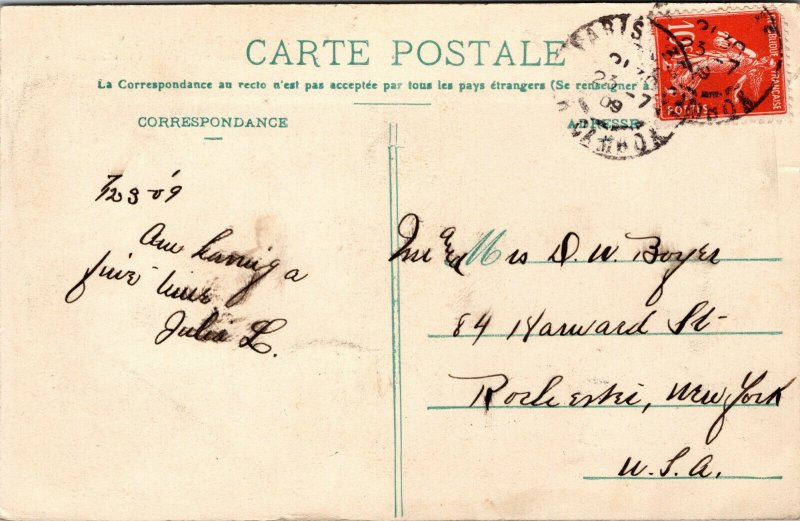 CARTE POSTALE
La Correspondance au recto n'est pas acceptée par tous les pays étrangers (Se renseigner à
CORRESPONDANCE
ADRESSE
PARIS
21 30
23 - 7
09
10c
FRANÇAISE
POSTES
7/23 - 09
Am having a
fine time
Julia L.
Mr and Mrs D. W. Boyer
84 Harvard St
Rochester, New York
U.S.A.